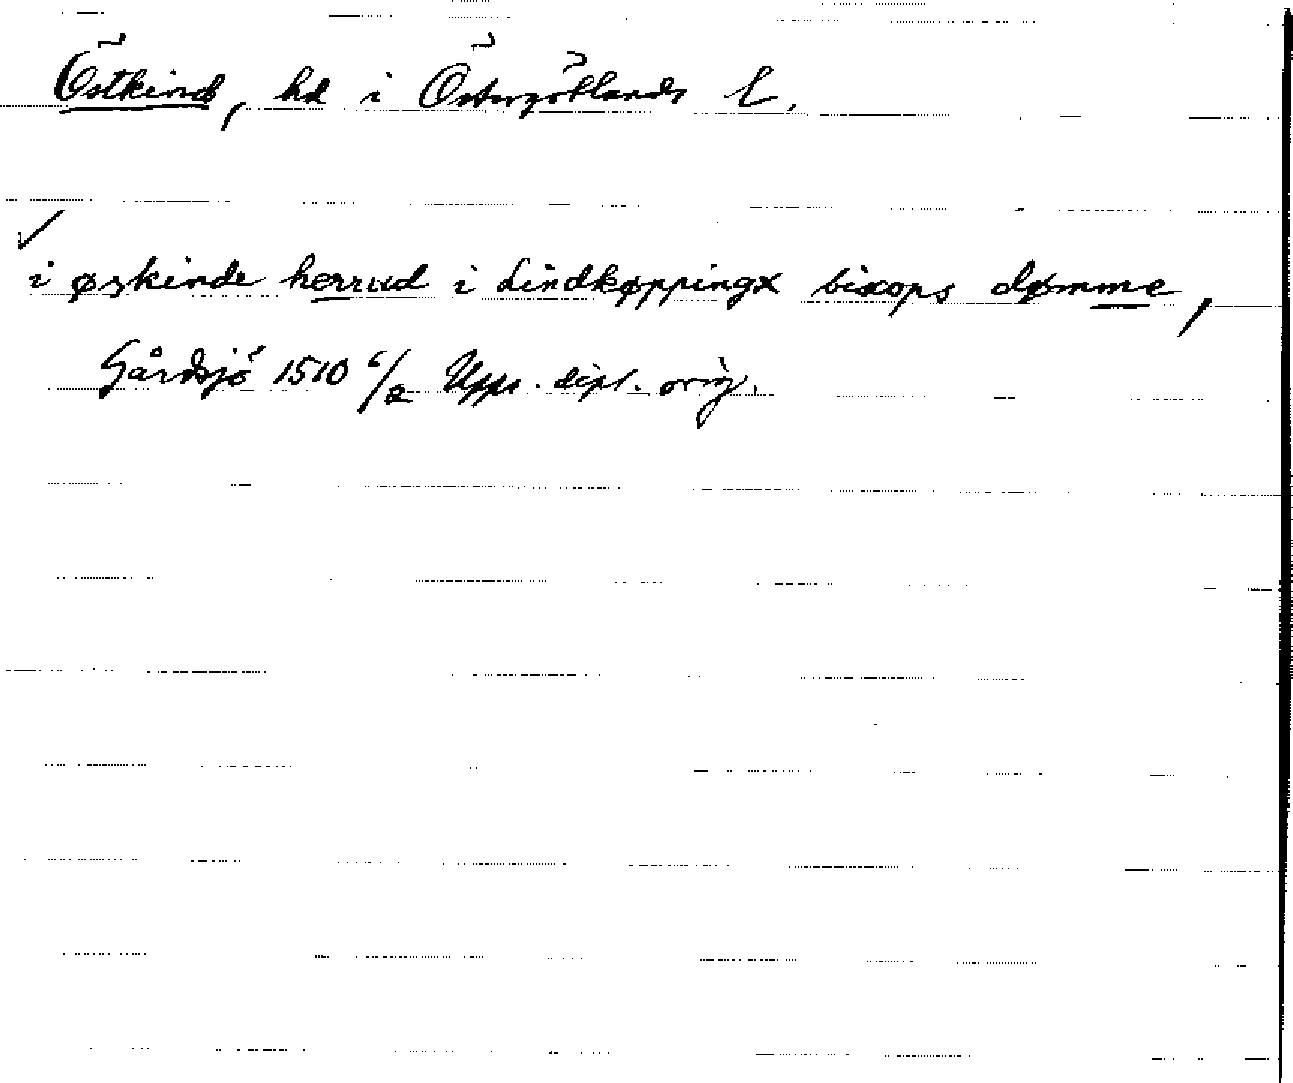 Östkind, hd i Östergötlands l.
i øskinde herrud i Lindkøppingx bixops dømme,
Gårdsjö 1510 6/2 Upps. dipl. orig.